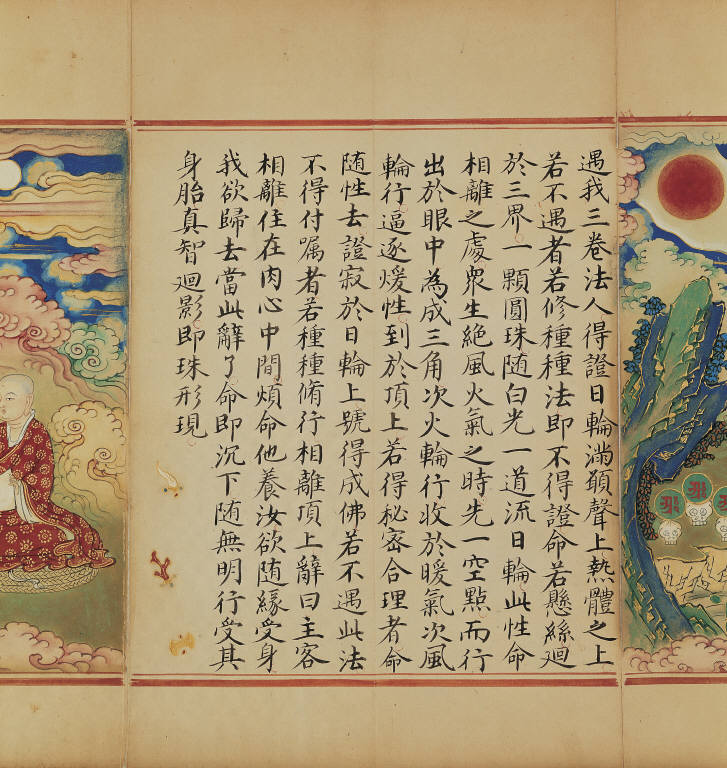 遇我三卷法人得證日輪滿額聲上熱體之上
若不遇者若修種種法即不得證命若懸絲廻
於三界一顆圓珠随白光一道流日輪此性命
相離之處衆生絕風火氣之時先一空點而行
出於眼中為成三角次火輪行收於暖氣次風
輪行逼逐煖性到於頂上若得秘密合理者命
随性去證寂於日輪上號得成佛若不遇此法
不得付嘱者若種種脩行相離頂上辭曰主客
相離住在肉心中間煩命他養汝欲随緣受身
我欲歸去當此辭了命即沉下随無明行受其
身胎真智廻影即珠形現